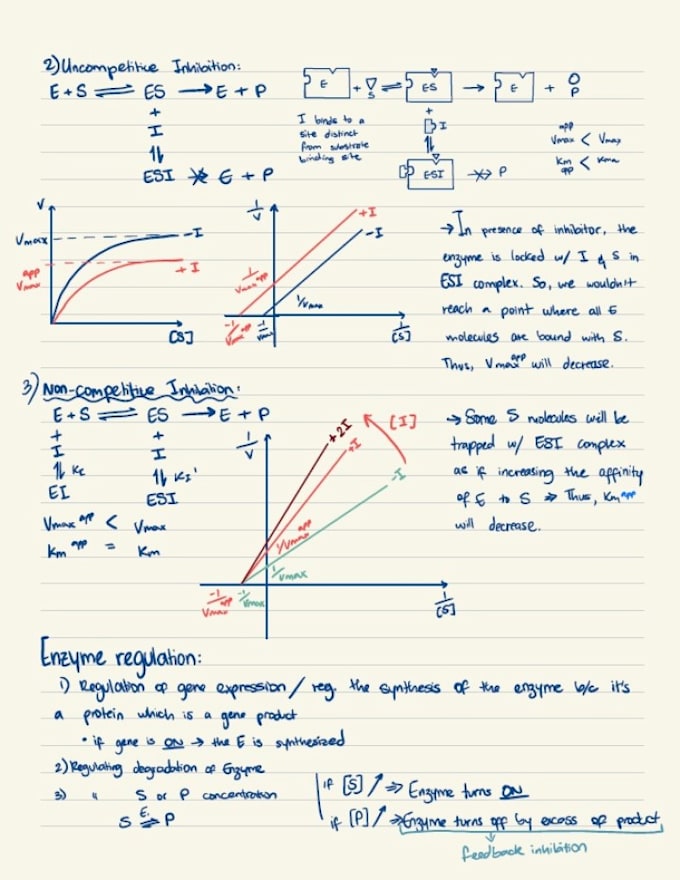 2) Uncompetitive Inhibition:
E + S ⇌ ES → E + P
+
I
⥮
ESI ↛ E + P
E + S ⇌ ES → E + P
I binds to a
site distinct
from substrate
binding site
+
I
⥮
ESI ↛ P
Vmax app < Vmax
Km app < Kmax
V
Vmax
app
Vmax
-I
+I
[S]
1/V
+I
-I
1/Vmax app
1/Vmax
-1/Vmax app
-1/Vmax
1/[S]
→ In presence of inhibitor, the
enzyme is locked w/ I & S in
ESI complex. So, we wouldn't
reach a point where all E
molecules are bound with S.
Thus, Vmax app will decrease.
3) Non-competitive Inhibition:
E + S ⇌ ES → E + P
+ +
I I
⥮ KI ⥮ KI'
EI ESI
Vmax app < Vmax
Km app = Km
1/V
+2I
+I
[I]
-I
1/Vmax app
1/Vmax
-1/Vmax app
-1/Vmax
1/[S]
→ Some S molecules will be
trapped w/ ESI complex
as if increasing the affinity
of E to S ⇒ Thus, Km app
will decrease.
Enzyme regulation:
1) Regulation of gene expression / reg. the synthesis of the enzyme b/c it's
a protein which is a gene product
• if gene is ON → the E is synthesized
2) Regulating degradation of Enzyme
3) " S or P concentration
S E⇌ P
if [S] ↗ ⇒ Enzyme turns ON
if [P] ↗ ⇒ Enzyme turns off by excess of product
feedback inhibition